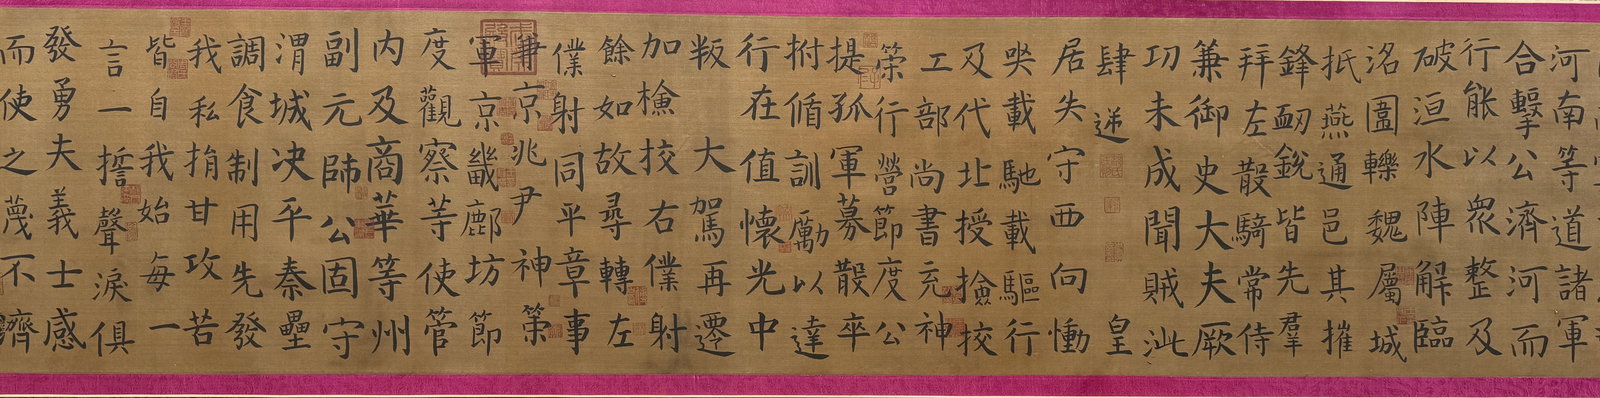 河南等道諸軍
合擊公濟河而
行能以衆整及
破洹水陣解臨
洺圍轢魏屬城
抵燕通邑其摧
鋒釰銳皆先羣
拜左散騎常侍
兼御史大夫厥
功未成聞賊泚
肆逆 皇
居失守西向慟
哭載馳載驅行
及代北授撿挍
工部尚書充神
策行營節度公
提孤軍募散卒
拊循訓勵以達
行在值懷光中
叛 大駕再遷
加檢挍右僕射
餘如故尋轉左
僕射同平章事
兼京兆尹神策
軍京畿鄜坊節
度觀察等使管
内及商華等州
副元帥公固守
渭城决平秦壘
調食制用先發
我私捐甘攻苦
皆自我始每一
言一誓聲淚俱
發勇夫義士感
而使之蔑不濟